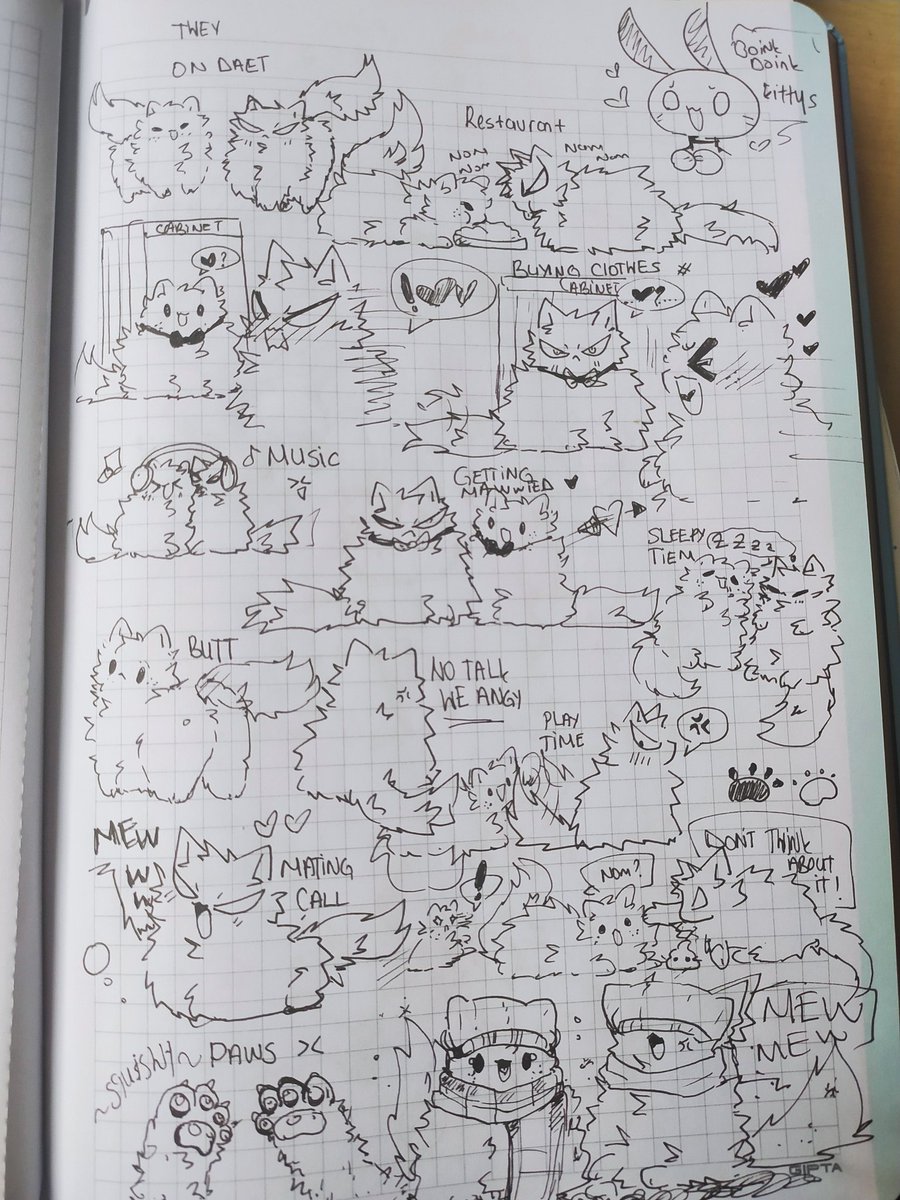 TWEY
ON DAET
Boink
Doink
kittys
Restaurant
NOM
NOM
Nom
Nom
CABINET
?
!
BUYING CLOTHES
CABINET
MUSIC
GETTING
MAWWIED
SLEEPY
TIEM
Z Z Z Z
BUTT
NO TALK
WE ANGY
PLAY
TIME
MEW
W
W
W
MATING
CALL
!
NOM?
DON'T THINK
ABOUT
IT!
~SQUISHY~ PAWS
MEW
MEW
GIPTA